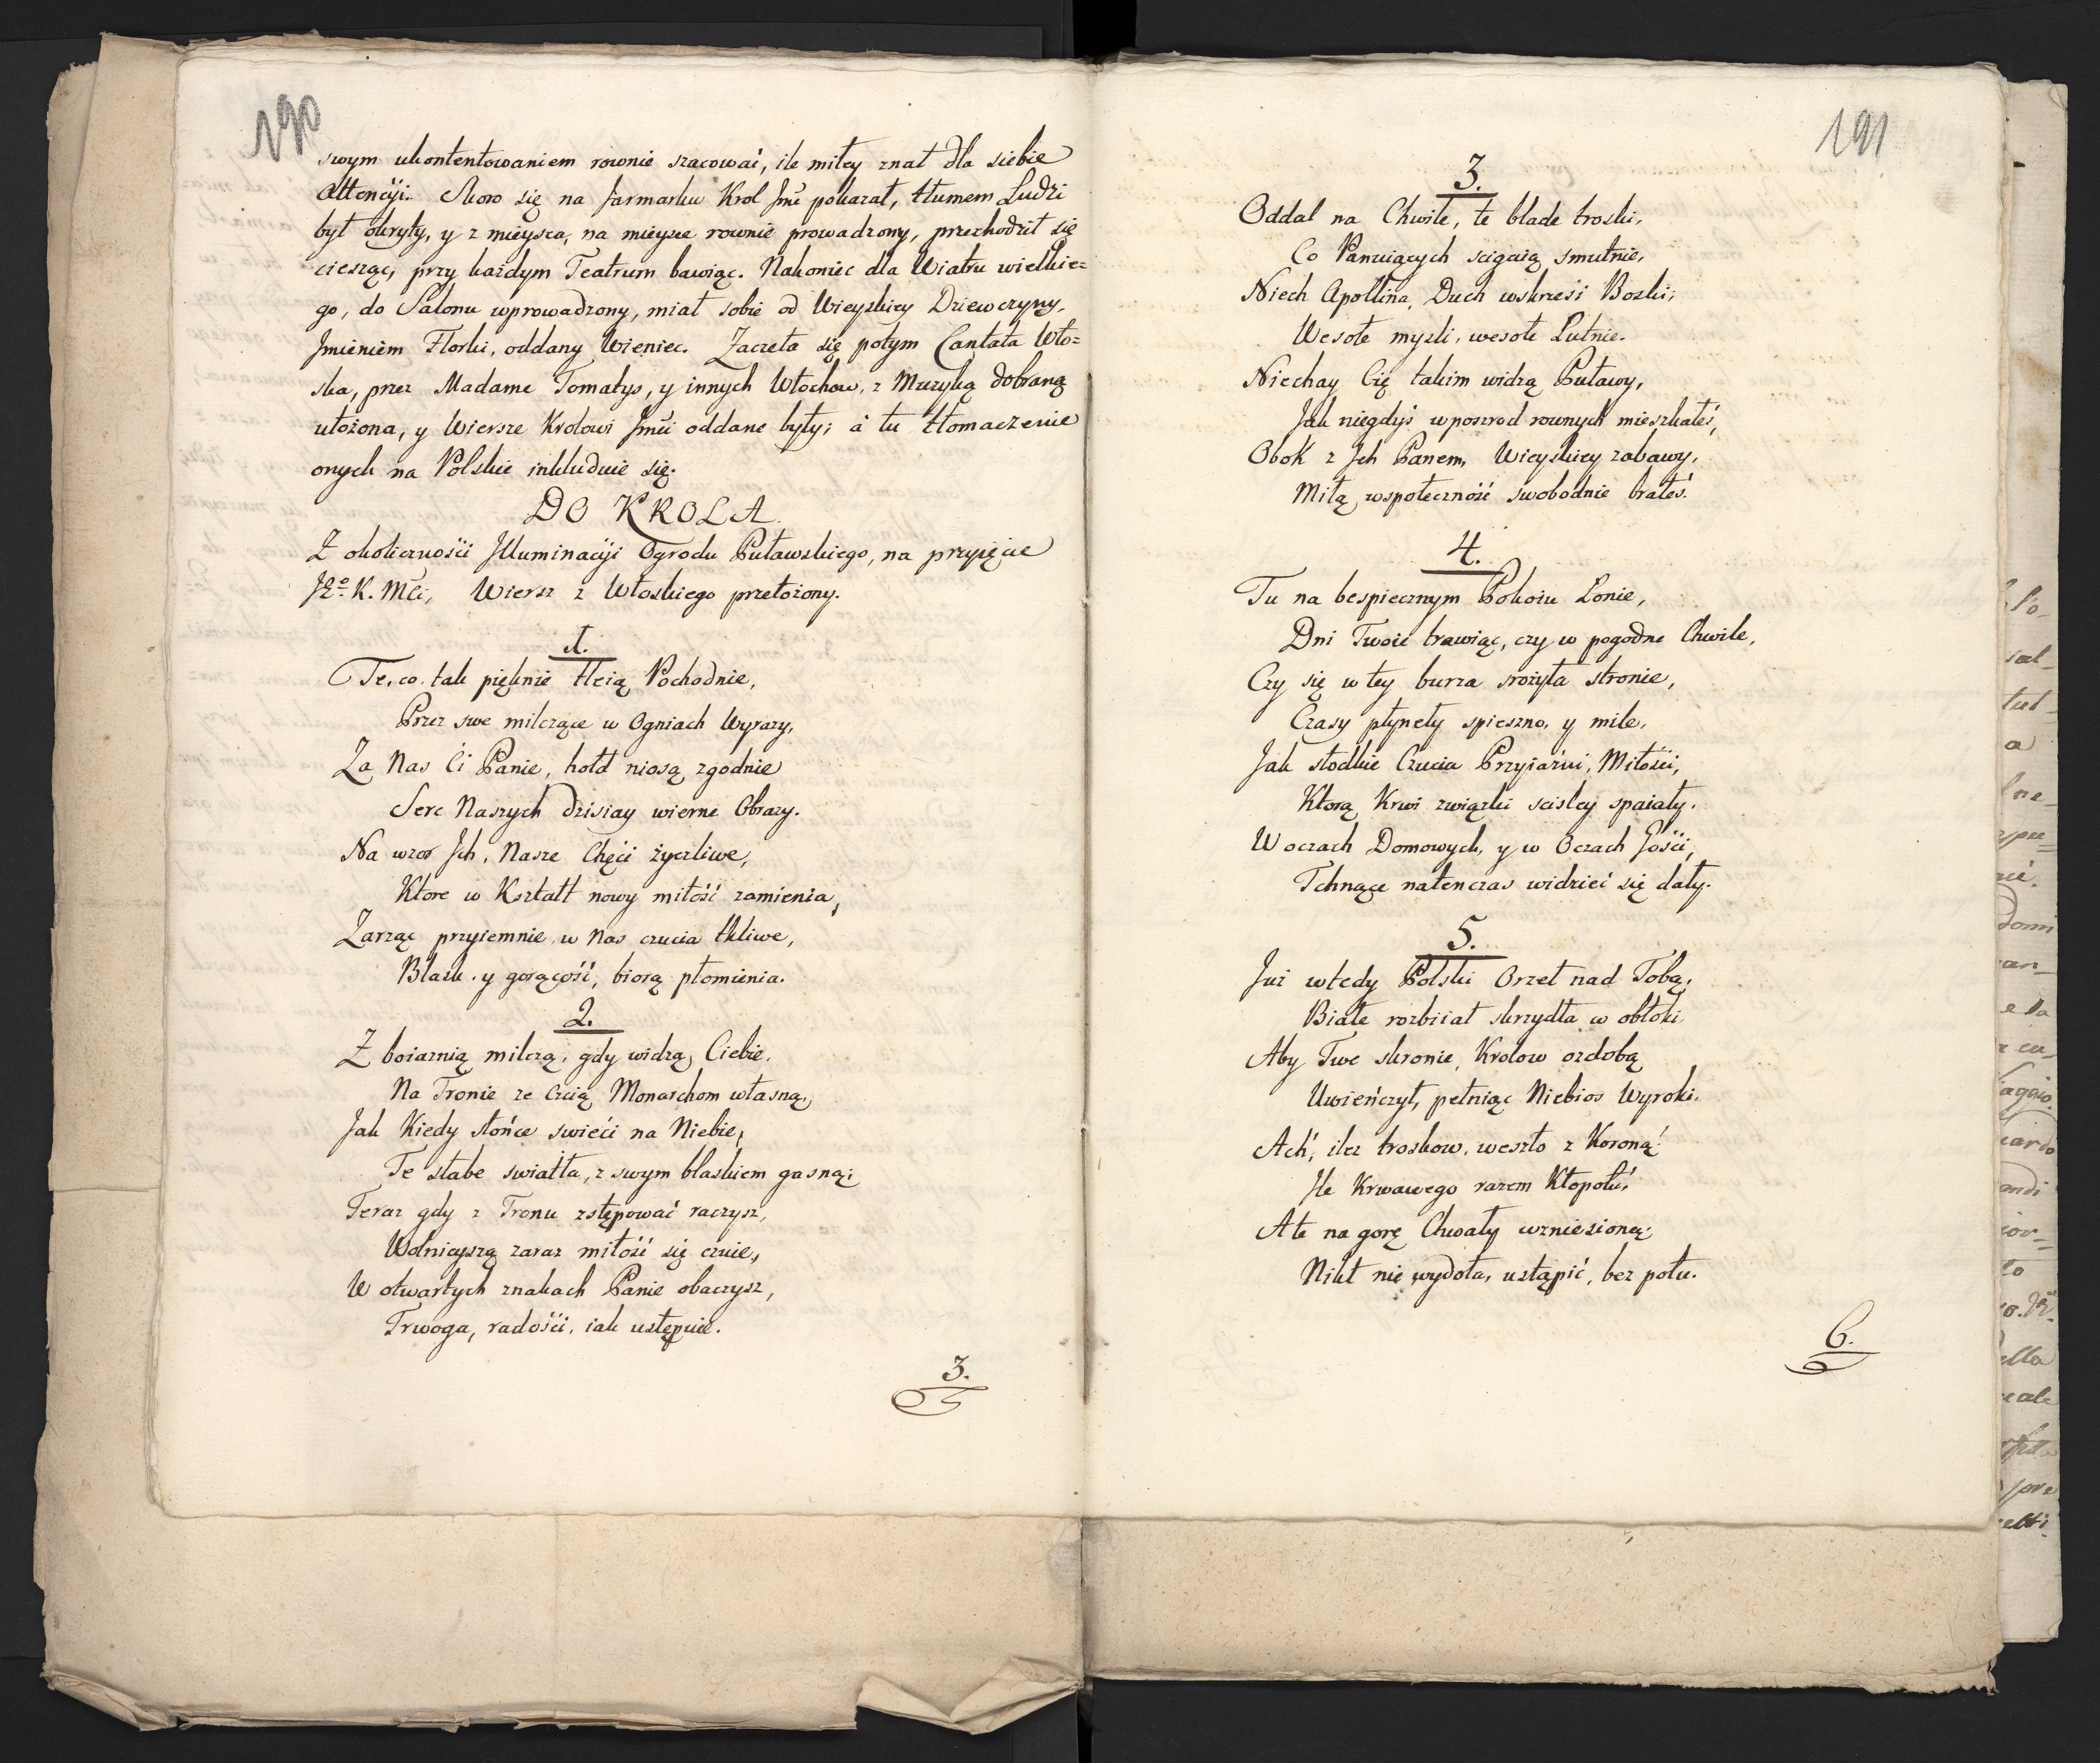 190
swym ukontentowaniem rownie szacować, ile miłey znał dla siebie
Attencyi. Skoro się na Jarmarku Krol Jmć pokazał, tłumem Ludzi
był okryty, y z mieysca, na mieysce rownie prowadzony, przechodził się
ciesząc, przy każdym Teatrum bawiąc. Nakoniec dla Wiatru wielkie=
go, do Salonu wprowadzony, miał sobie od Wieyskiey Dziewczyny,
Jmieniem Florki, oddany Wieniec. Zaczeła się potym Cantata Wło=
ska, przez Madame Tomatys, y innych Włochow, z Muzyką dobraną
ułożona, y Wiersze Krolowi Jmći oddane były; á tu tłomaczenie
onych na Polskie inkluduie się.
DO KROLA.
Z okolicznośći Jlluminacyi Ogrodu Puławskiego, na przyięcie
Jego K. Mći, Wiersz z Włoskiego przełożony.
1.
Te, co tak pięknie tleią Pochodnie,
Przez swe milczące w Ogniach Wyrazy,
Za Nas Ci Panie, hołd niosą zgodnie
Serc Naszych dzisiay wierne Obrazy.
Na wzor Jch, Nasze Chęći życzliwe,
Ktore w Kształt nowy miłość zamienia,
Zarząc przyiemnie w Nas czucia tkliwe,
Blask y gorącość, biorą płomienia.
2.
Z boiaznią milczą, gdy widzą Ciebie,
Na Tronie ze Czcią Monarchom własną,
Jak Kiedy słońce swieći na Niebie,
Te słabe swiatła, z swym blaskiem gasną;
Teraz gdy z Tronu zstępować raczysz,
Wolnieyszą zaraz miłość się czuie,
W otwartych znakach Panie obaczysz,
Trwoga, radośći, iak ustępuie.
3.
191
3.
Oddal na Chwile, te blade troski,
Co Panuiących scigaią smutnie,
Niech Apollina, Duch wskrześi Boski;
Wesołe mysli, wesołe Lutnie.
Niechay Cię takim widzą Puławy,
Jak niegdyś wposrod rownych mieszkałeś,
Obok z Jch Panem, Wieyskiey zabawy,
Miłą wspołeczność swobodnie brałeś.
4.
Tu na bespiecznym Pokoiu Łonie,
Dni Twoie trawiąc, czy w pogodne Chwile,
Czy się w tey burza srożyła stronie,
Czasy płyneły spieszno, y mile,
Jak słodkie Czucia Przyiaźni, Miłośći,
Ktorą Krwi związki scisley spaiały.
W oczach Domowych, y w Oczach Gośći,
Tchnące natenczas widzieć się dały.
5.
Już wtedy Polski Orzeł nad Tobą,
Białe rozbiiał skrzydła w obłoki
Aby Twe skronie, Krolow ozdobą
Uwieńczył, pełniąc Niebios Wyroki.
Ach, ilez troskow, weszło z Koroną!
Jle Krwawego razem Kłopotu,
Ale na gorę Chwały wzniesioną;
Nikt nie wydoła, ustąpić, bez potu.
6.